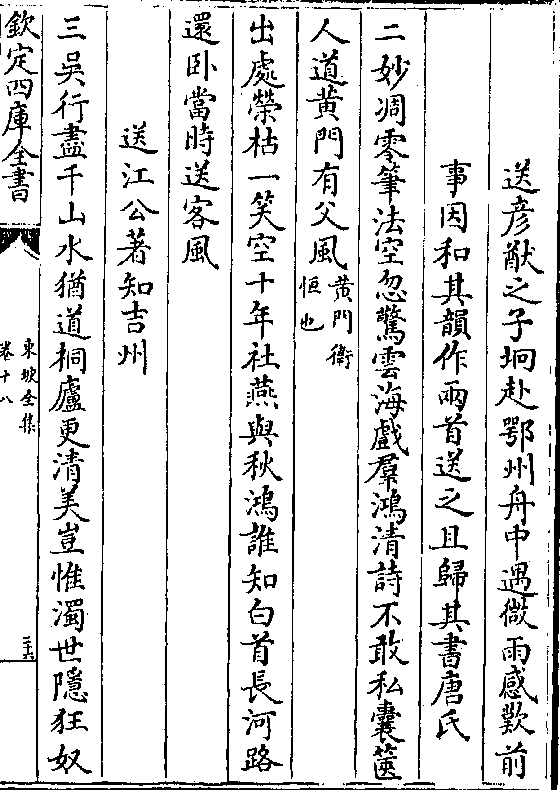 送彦猷之子坰赴鄂州舟中遇微雨感歎前
事因和其韻作兩首送之且歸其書唐氏
二妙凋零筆法空忽驚雲海戲羣鴻清詩不敢私囊篋
人道黄門有父風黄門衛
恒也
出處榮枯一笑空十年社燕與秋鴻誰知白首長河路
還卧當時送客風
送江公著知吉州
三吳行盡千山水猶道桐廬更清美豈惟濁世隱狂奴
欽定四庫全書
東坡全集
卷十八
三六